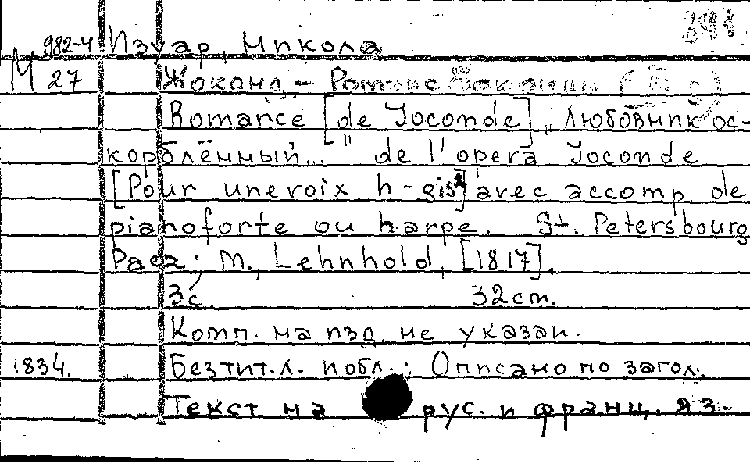 982-4 Изуар, Никола
М 27 Жоконд – Романс
Romance [de Joconde] "Любовник ос-
корблённый..." de l'opera Joconde
[Pour une voix h-gis] avec accomp de
pianoforte ou harpe. St. Petersbourg
Paez; M., Lehnhold, [1817].
3с. 32cm.
Комп. на изд. не указан.
1834. Без тит. л. и обл.: Описано по загол.
Текст на рус. и франц. яз.